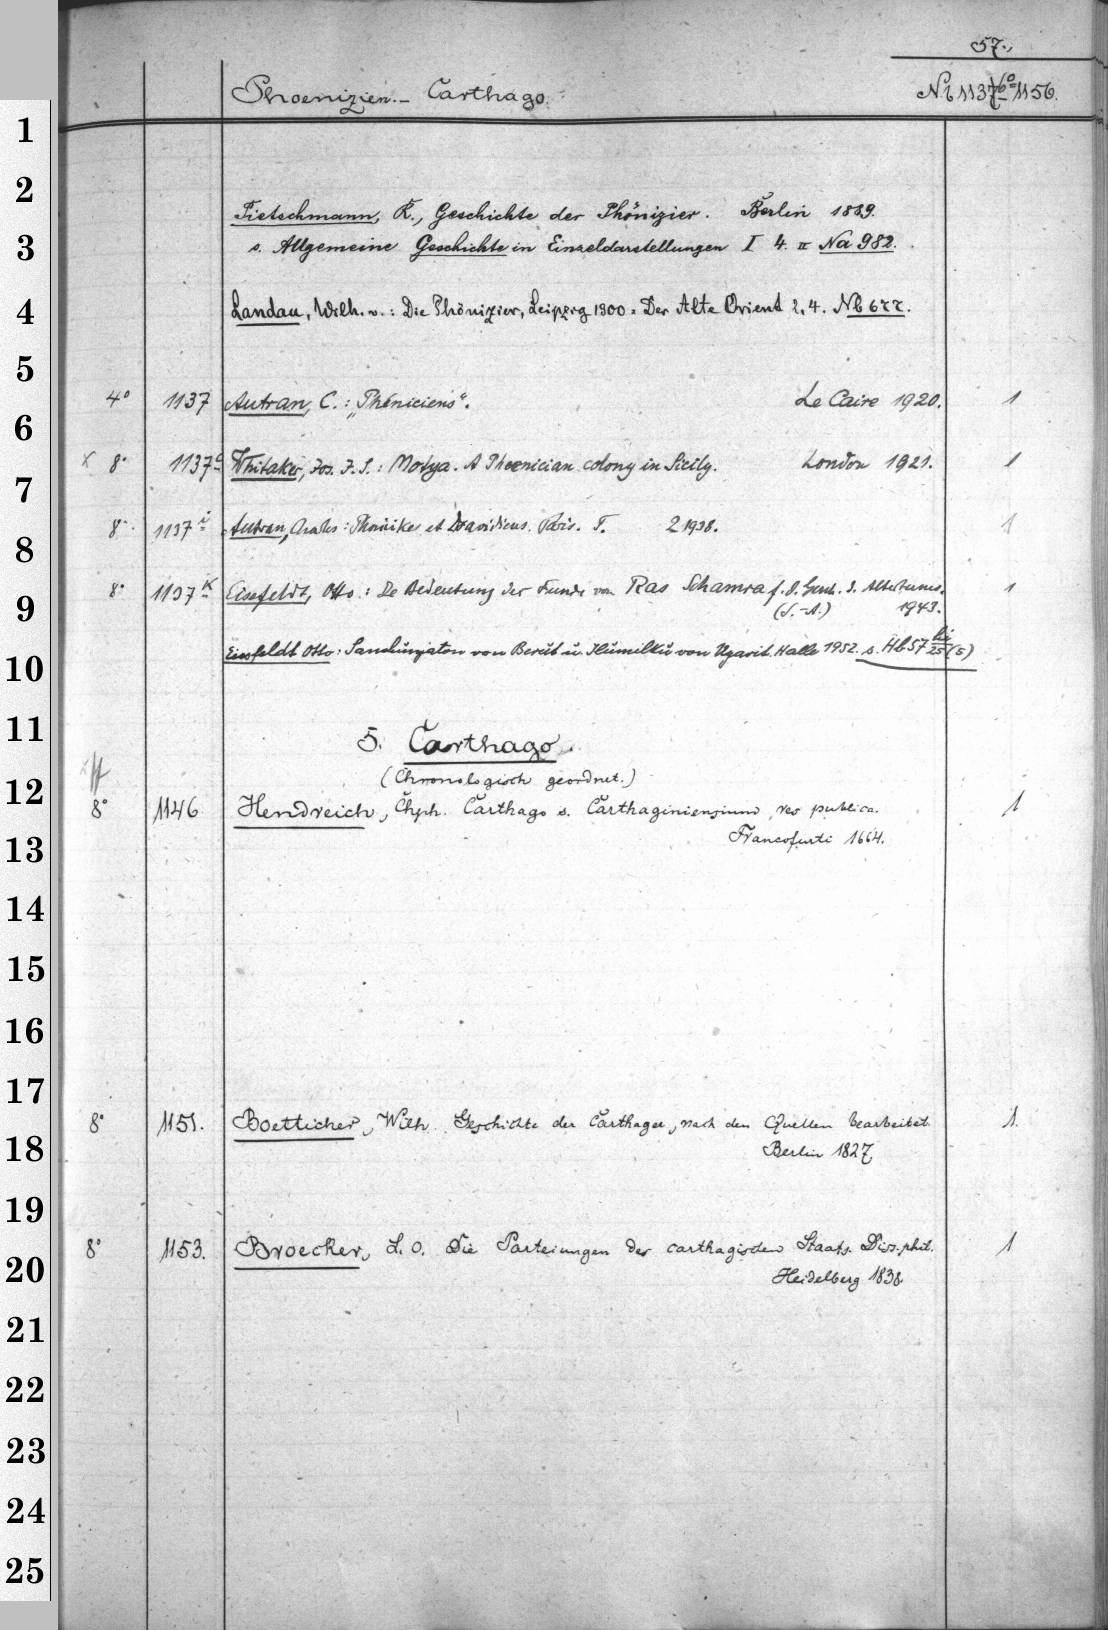 57.
Phoenizien. - Carthago.
Nb 1137 bo 1156.
1
2
Pietschmann, R., Geschichte der Phönizier. Berlin 1889.
3
s. Allgemeine Geschichte in Einzeldarstellungen I 4. II Na 982.
4
Landau, Wilh. v.: Die Phönizier, Leipzig 1900 = Der Alte Orient 2, 4. Nb 677.
5
4° 1137 Autran, C.: „Phéniciens“. Le Caire 1920. 1
6
x 8° 1137c Whitaker, Jos. I. S.: Motya. A Phoenician colony in Sicily. London 1921. 1
7
8° 1137 i Autran, Charles: Phoinikes et Dravidiens. Paris. T. 2 1938. 1
8
8° 1137 k Eissfeldt, Otto: De Bedeutung der Funde von Ras Schamra f. d. Gesch. d. Altertums. 1
9
(S.-A.) 1943.
Eissfeldt Otto: Sanchunjaton von Berut u. Ilumilku von Ugarit. Halle 1952. s. Hb 57 (5)
10
11
5. Carthago.
(Chronologisch geordnet.)
12
8° 1146 Hendreich, Chph. Carthago s. Carthaginiensium res publica. 1
Francofurti 1664.
13
14
15
16
17
8° 1151. Boetticher, Wilh. Geschichte der Carthager, nach den Quellen bearbeitet 1.
18
Berlin 1827
19
8° 1153. Broecker, L. O. Die Parteiungen des carthagischen Staats. Diss. phil. 1
20
Heidelberg 1838
21
22
23
24
25